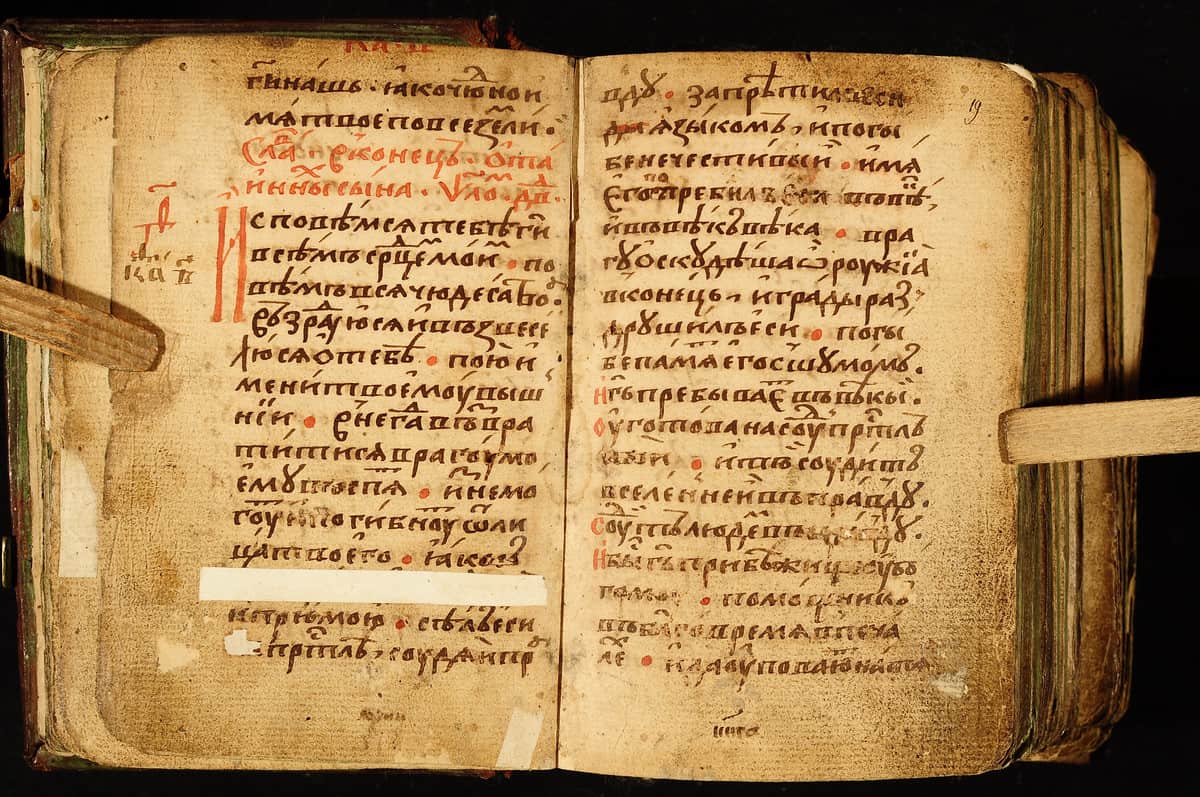 гн҃ъ нашь · ꙗко чю́дно и҆́
мѧ твое повсе́и҆ ꙁемли́ ·
сла́в · в конець · ѿ та́
и҆нныхъ сы́на · ѱало · дв҃дъ ·
Исповѣ́мсѧ тебѣ гн҃и
всѣ́мъ ср҃цемъ мои́мъ · по
вѣ́мъ всѧ чюдеса́ тво
возра́дꙋюсѧ и҆ въꙁвесе
лю́сѧ ѡ҆ тебѣ · пою̀ и҆́
мени твое́моу вы́ш
нїи · внегда̀ въꙁвра
ти́тисѧ врагоу мо
е҆мꙋ въспѧ · и҆ꙁнемо
гоу и҆ поги́бноу ѿ ли
ца̀ твое́го · ꙗ҆́ко
и҆ прю мою̀ · сѣ́лъ е҆си
прⷭ҇тлѣ, соудѧ́и пра
вдꙋ · запрѣти́лъ е҆си
ꙗ҆ꙁы́комъ, и҆ погы́
бе нечести́вый · и҆́мѧ
е҆го̀ потреби́лъ е҆си въ вѣ́къ,
и҆ въ вѣкъ вѣ́ка · вра
гꙋ ѡ҆скꙋдѣ́ша ѡ҆роужїѧ
в коне́ць, и҆ гра́ды раꙁ
дрꙋши́лъ е҆си · погы́
бе па́мѧть е҆го̀ с шꙋмо́мъ ·
И҆ гь҃ пребыва́етъ въ вѣ́кы ·
оу҆гото́ва на сꙋ́дъ прⷭ҇тлъ
сво́й · и҆ тъ́ соу́дитъ
вселе́ннѣй въ пра́вдꙋ ·
соу́дитъ лю́демъ въ пра́вдꙋ ·
И҆ бы́сть гь҃ прибѣ́жище оу҆бо
гомоу · помо́щникъ
въ бл҃го вре́мѧ в печа
ле · и҆ да оу҆пова́ютъ на тѧ
19